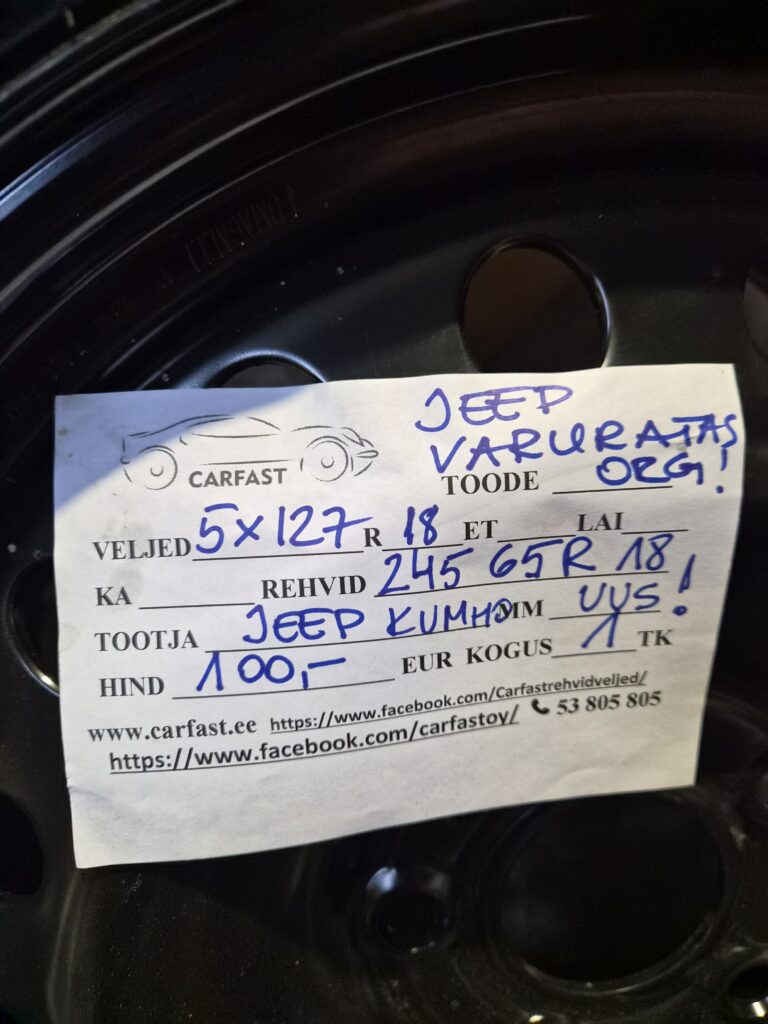 JEEP
VARURATAS
CARFAST
TOODE ORG!
VELJED 5x127 R 18 ET LAI
KA REHVID 245 65R 18
TOOTJA JEEP KUMHO MM UUS!
HIND 100,- EUR KOGUS 1 TK
www.carfast.ee https://www.facebook.com/Carfastrehvidveljed/
https://www.facebook.com/carfastoy/ 53 805 805